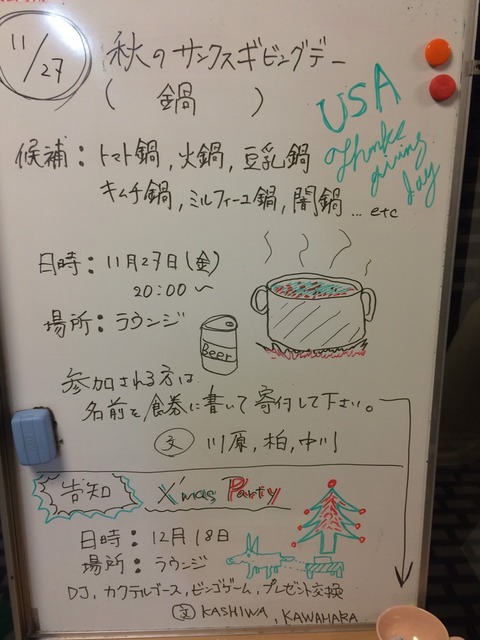 11/27
秋のサンクスギビングデー
(鍋)
USA
Thanks
giving
day
候補：トマト鍋,火鍋,豆乳鍋
キムチ鍋,ミルフィーユ鍋,闇鍋...etc
日時：11月27日(金)
20:00〜
場所：ラウンジ
Beer
参加される方は
名前を食券に書いて寄付して下さい。
文 川原,柏,中川
告知 X'mas Party
日時：12月18日
場所：ラウンジ
DJ,カクテルブース,ビンゴゲーム,プレゼント交換
文 KASHIWA, KAWAHARA